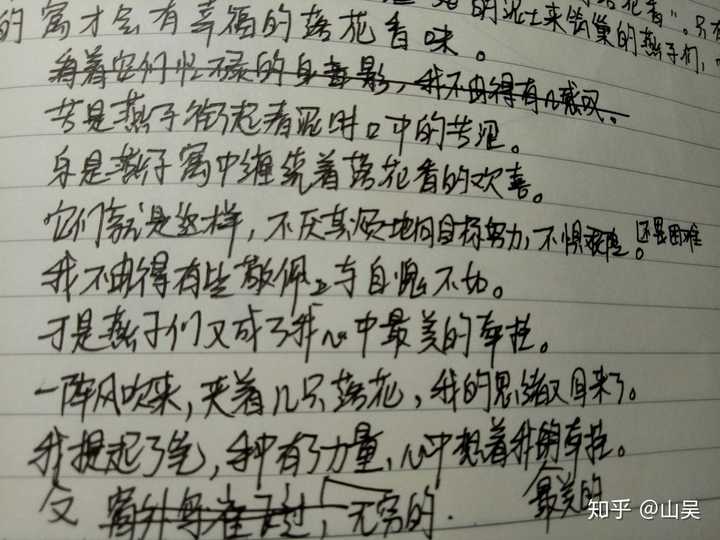 的泥土来筑巢的燕子们,
的窝才会有幸福的落花香味。
看着它们忙碌的身影,我不由得有几感叹。
苦是燕子衔起春泥时口中的苦涩。
乐是燕子窝中缠绕着落花香的欢喜。
它们就是这样,不厌其烦地向目标努力,不惧 。还是困难
我不由得有些敬佩与自愧不如。
于是燕子们又成了我心中最美的牵挂。
一阵风吹来,夹着几只落花,我的思绪又回来了。
我提起了笔,手中有了力量,心中想着我的牵挂。
窗外 过,无穷的. 最美的
知乎 @山吴